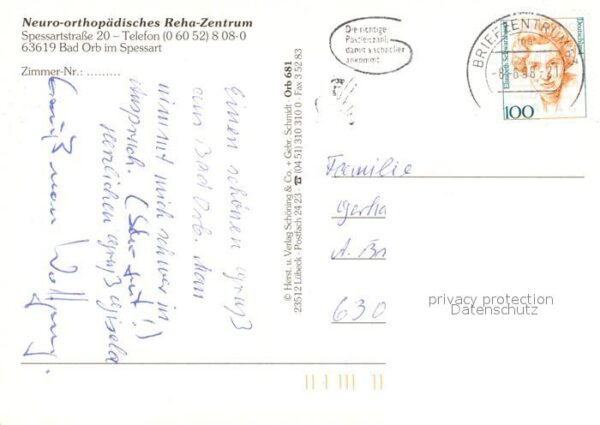 Neuro-orthopädisches Reha-Zentrum
Spessartstraße 20 – Telefon (0 60 52) 8 08-0
63619 Bad Orb im Spessart
Zimmer-Nr.: .........
Einen schönen Gruß
aus Bad Orb. Man
nimmt mich schwer in
Anspruch. (Sehr gut!)
Herzlichen Gruß Gisela
Gruß von Wolfgang.
© Herst. u. Verlag Schöning & Co. + Gebr. Schmidt · Orb 681
23512 Lübeck · Postfach 24 23 · ☎ (04 51) 310 310 0 · Fax 3 52 83
Die richtige
Postleitzahl,
damit's schneller
ankommt.
BRIEFZENTRUM 63
Deutschland
100
Familie
Gerha
A. Br
630
privacy protection
Datenschutz